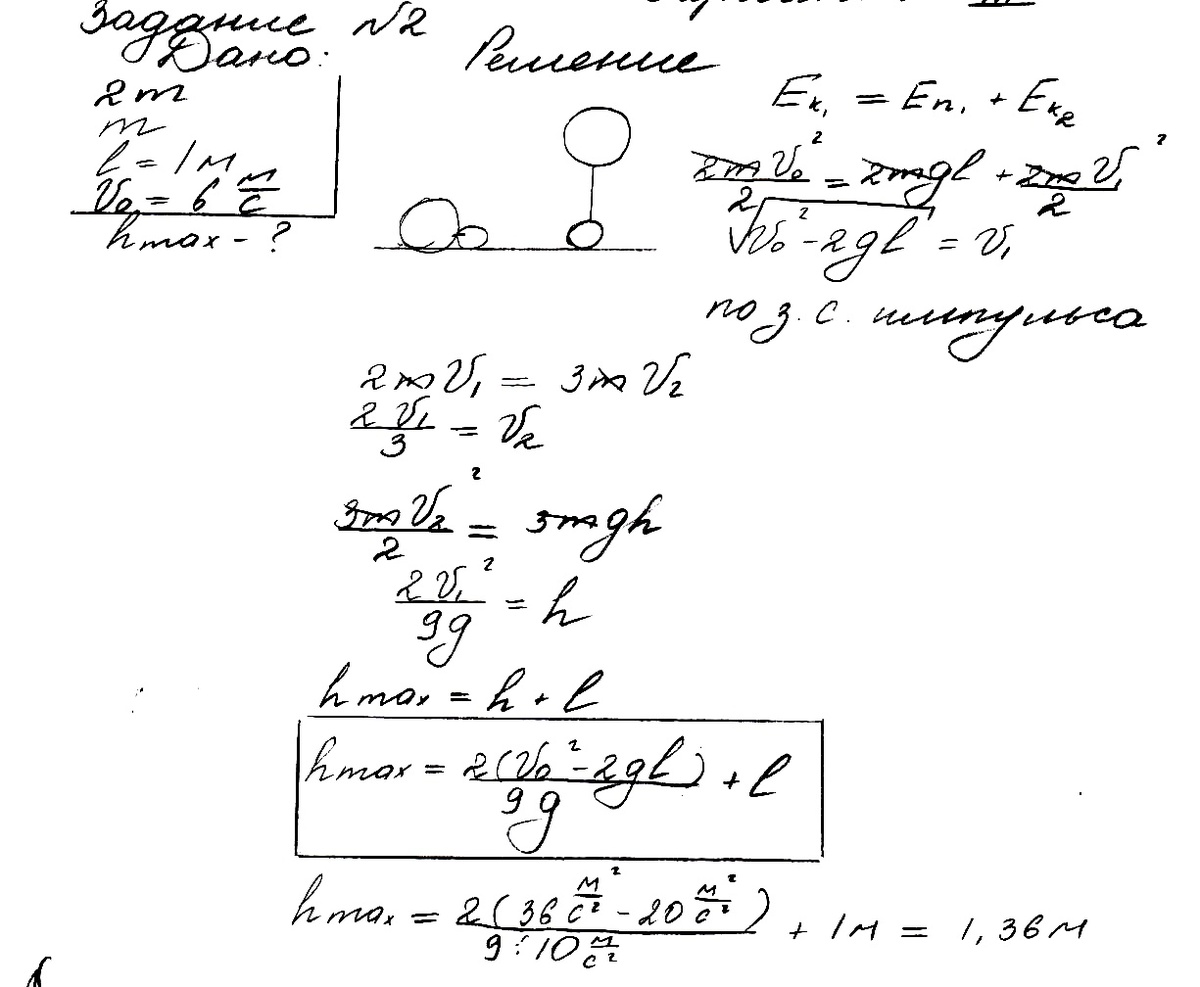 Задание №2
Дано: Решение
2m
m
l = 1м
V₀ = 6 м/с
hmax - ?
Eк₁ = Eп₁ + Eк₂
2mV₀²/2 = 2mgl + 2mV₁²/2
√(V₀² - 2gl) = V₁
по з. с. импульса
2mV₁ = 3mV₂
2V₁/3 = V₂
3mV₂²/2 = 3mgh
2V₁²/9g = h
hmax = h + l
hmax = 2(V₀² - 2gl)/9g + l
hmax = 2(36 м²/с² - 20 м²/с²)/9·10 м/с² + 1м = 1,36м